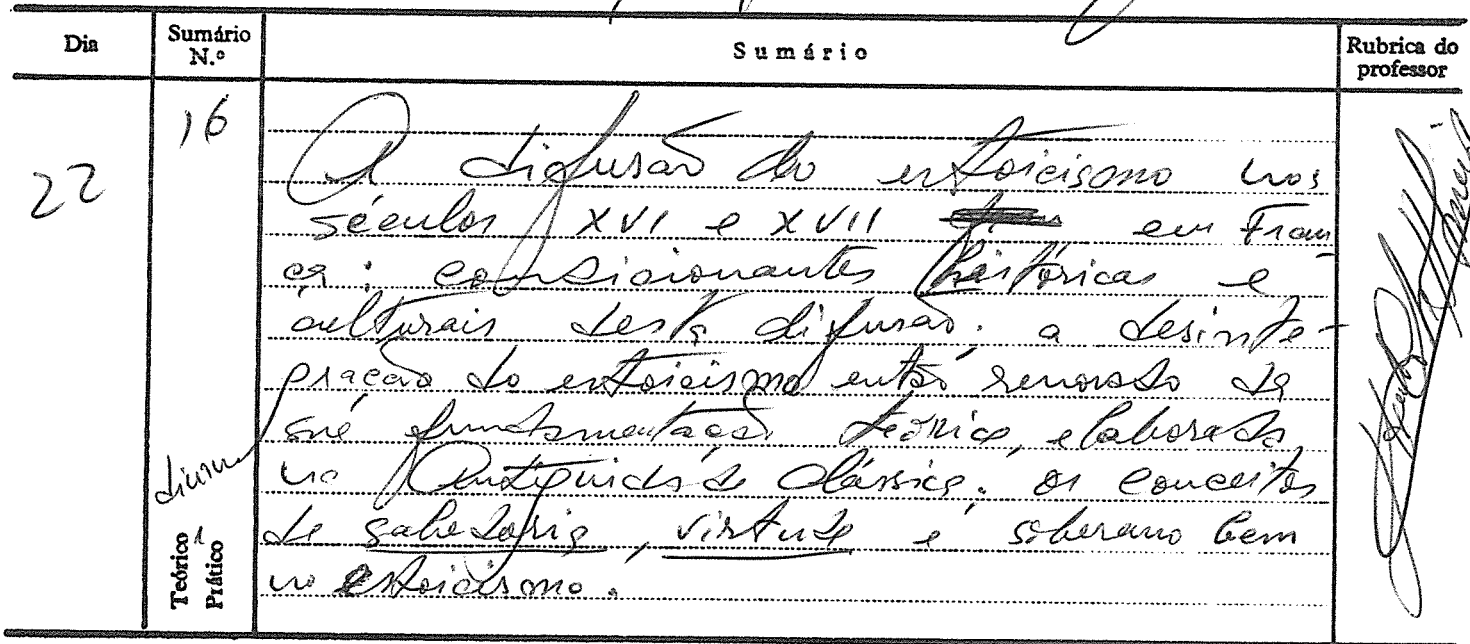 Dia
Sumário N.º
Sumário
Rubrica do professor
22
16
A difusão do estoicismo nos
séculos XVI e XVII em Fran
ça: condicionantes históricas e
culturais desta difusão; a desinte-
gração do estoicismo então renovado da
sua fundamentação teórica, elaborada
na Antiguidade Clássica; os conceitos
de sabedoria, virtude e soberano bem
no estoicismo.
diurno
Teórico
Prático